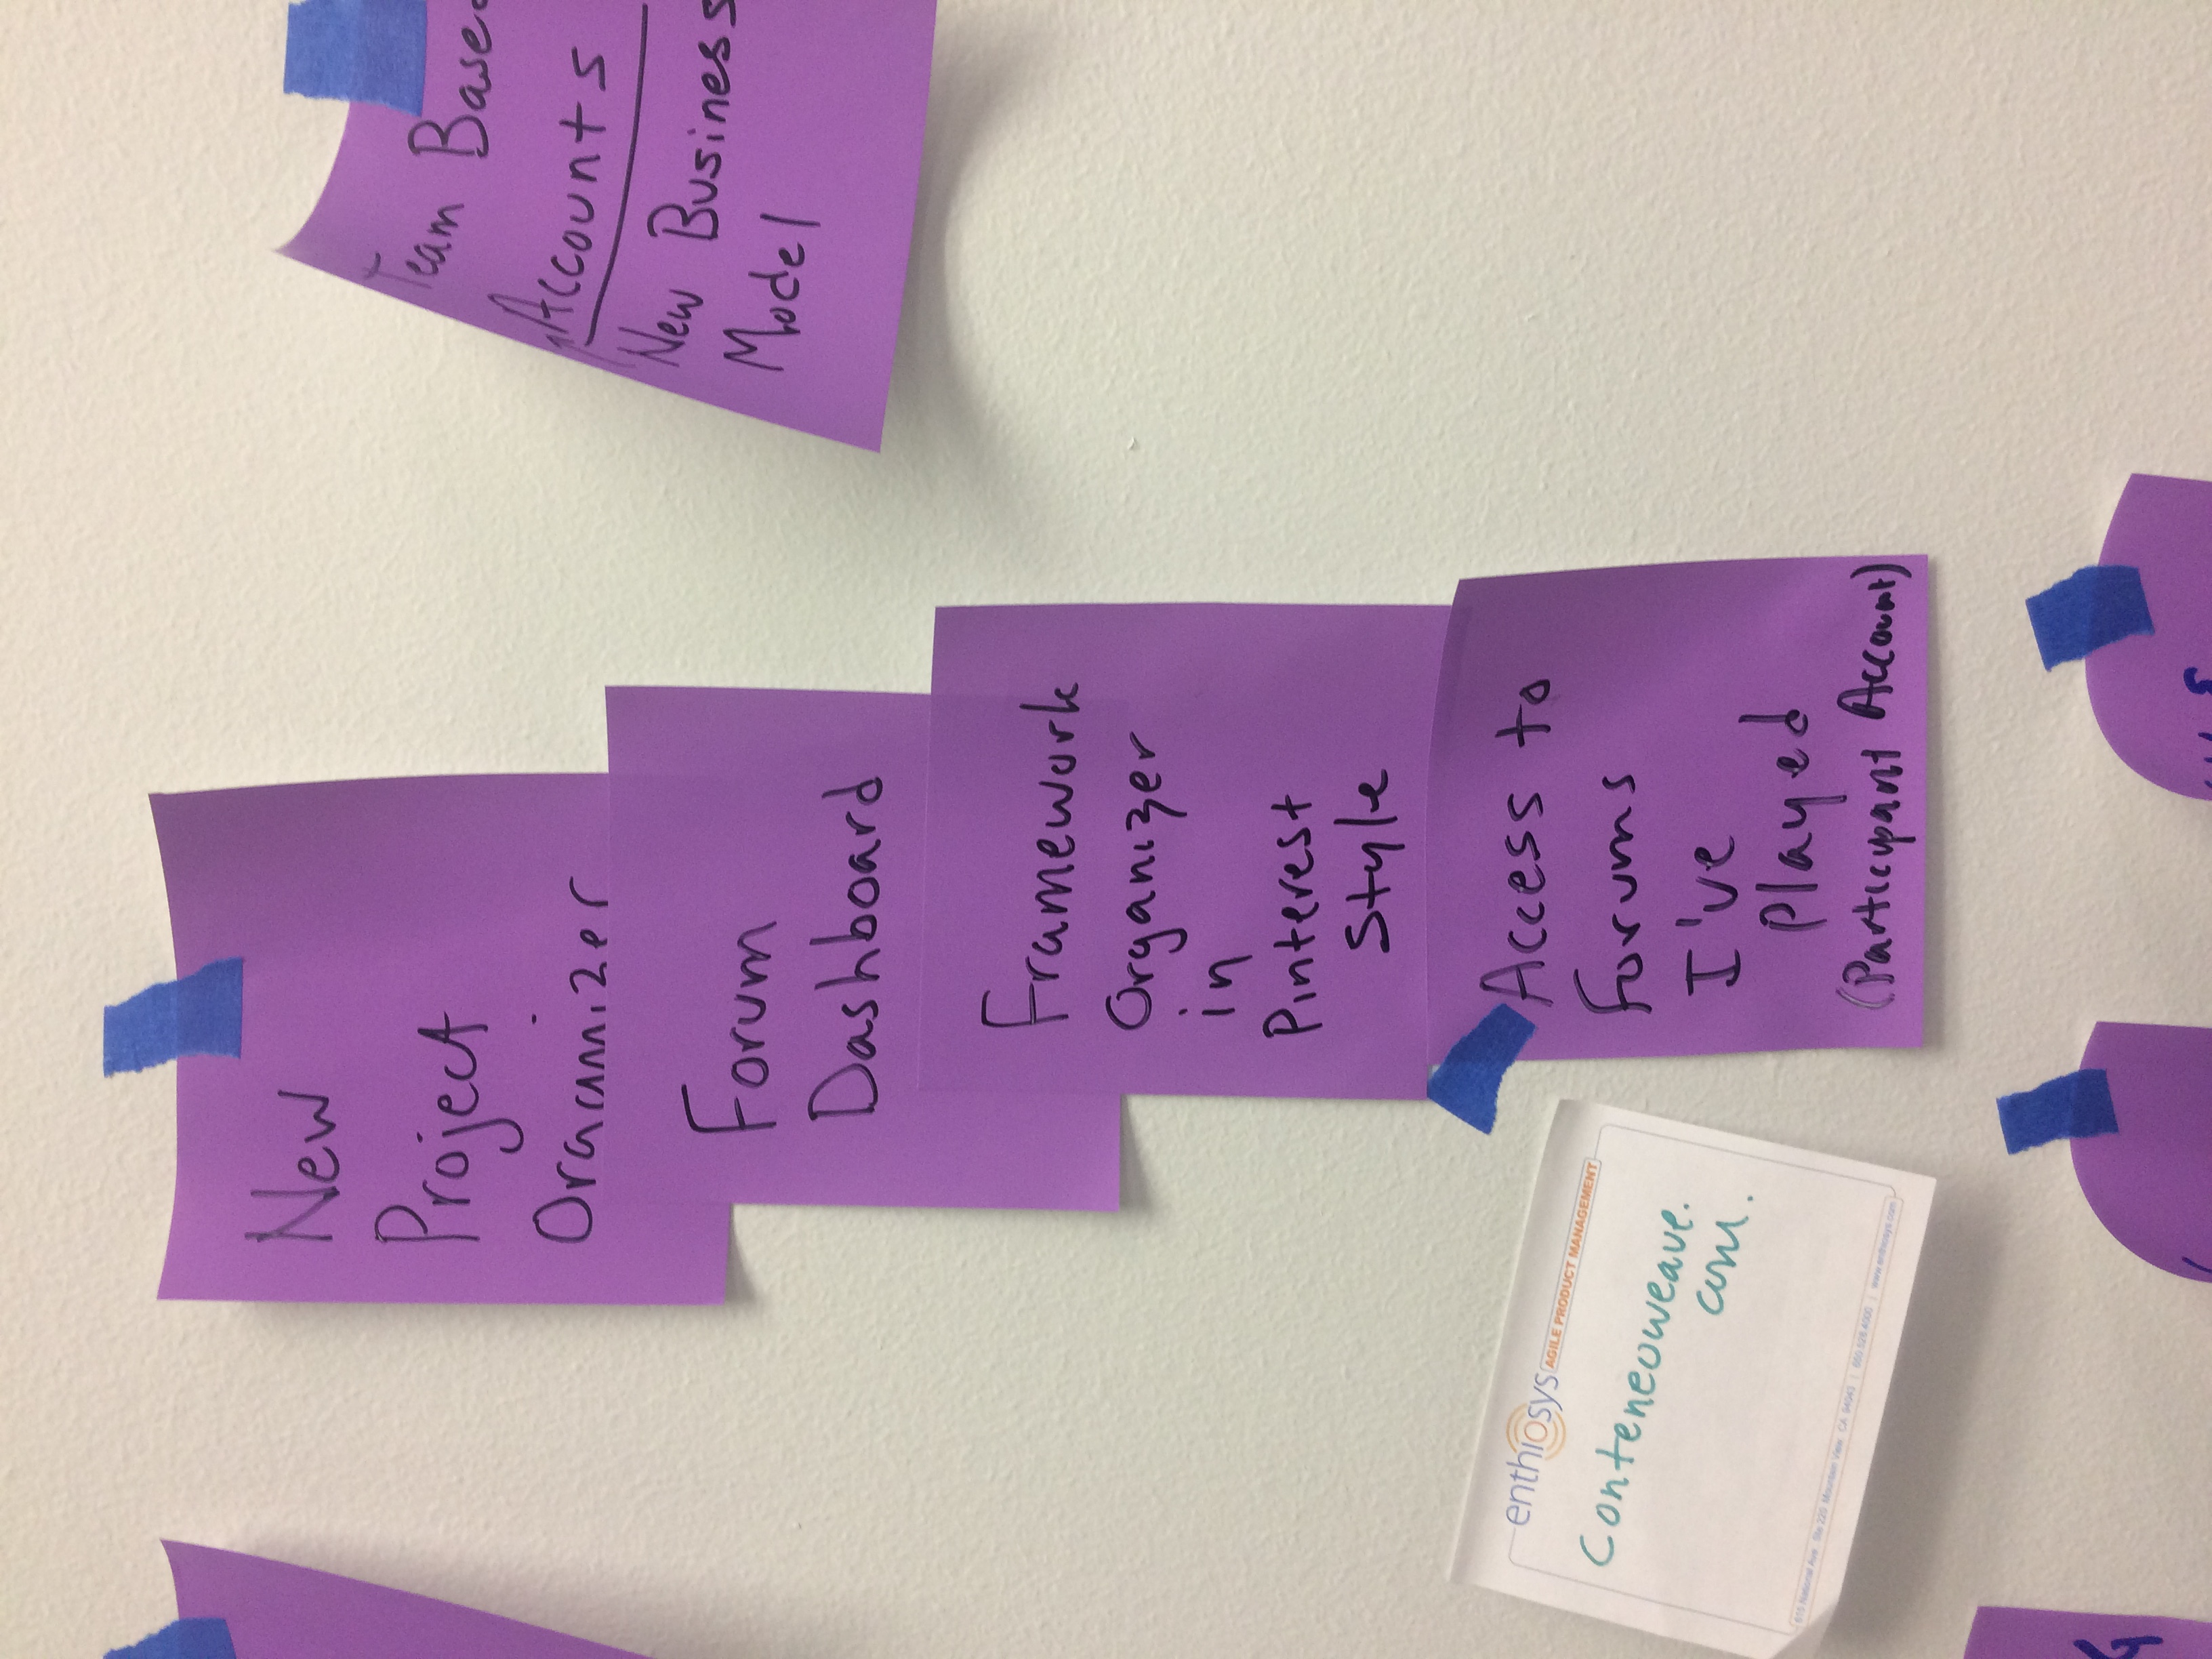 New
Project
Organizer
Forum
Dashboard
Framework
Organizer
in
Pinterest
Style
Access to
Forums
I've
Played
(Participant Account)
Team Based
Accounts
New Business
Model
enthiosys
AGILE PRODUCT MANAGEMENT
Conteneoweave.
com.
615 National Ave. Ste 220 Mountain View CA 94043 | 650.528.4000 | www.enthiosys.com